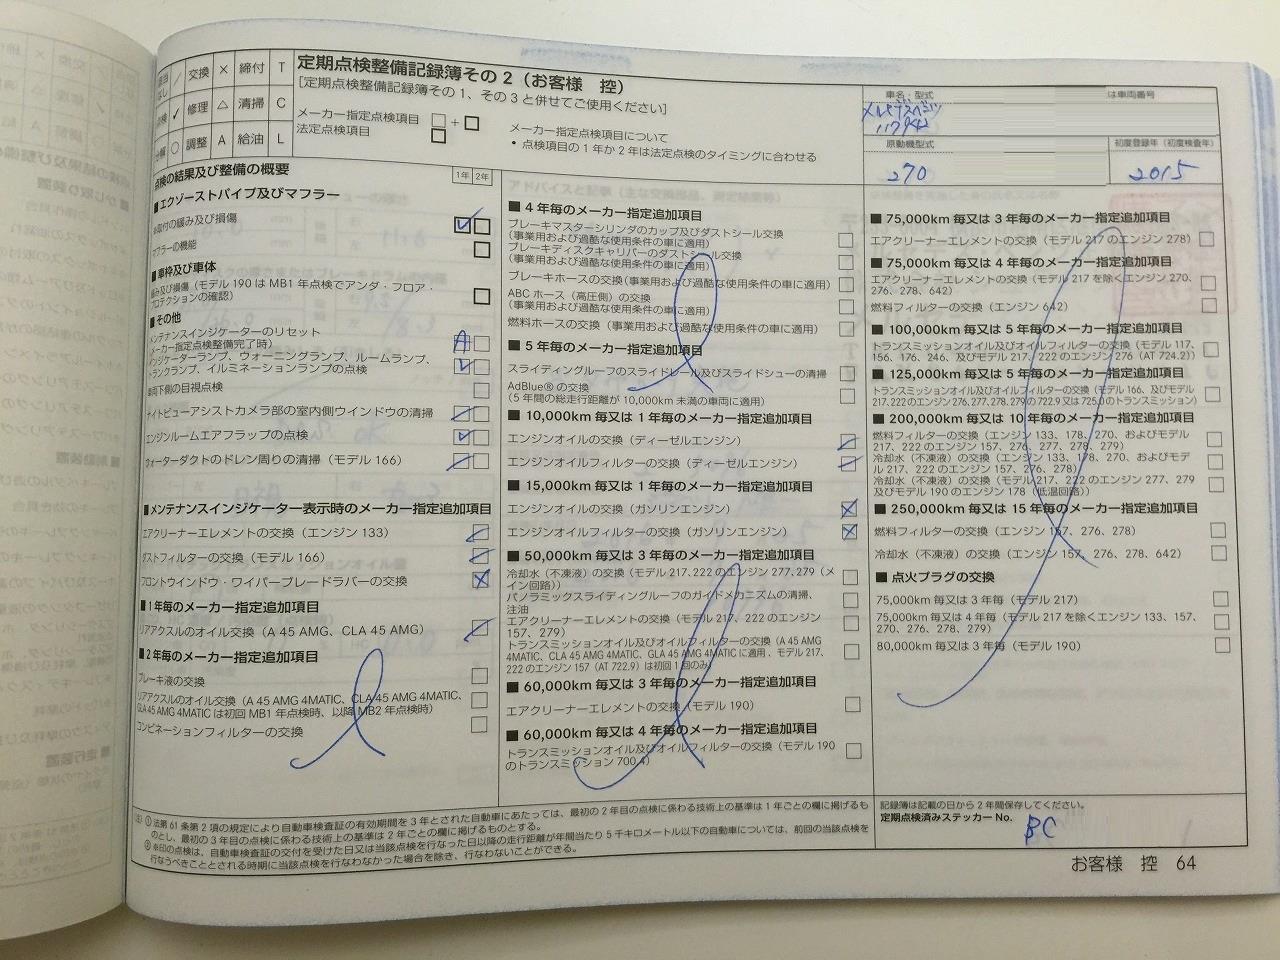 該当なし / 交換 × 締付 T
点検 ✓ 修理 △ 清掃 C
分解 ○ 調整 A 給油 L
定期点検整備記録簿その2（お客様　控）
[定期点検整備記録簿その1、その3と併せてご使用ください]
メーカー指定点検項目 □ + □
法定点検項目 □
メーカー指定点検項目について
• 点検項目の1年か2年は法定点検のタイミングに合わせる
車名・型式
は車両番号
メルセデスベンツ
原動機型式
270
初度登録年（初度検査年）
2015
点検の結果及び整備の概要
1年 2年
■エクゾーストパイプ及びマフラー
※取付の緩み及び損傷
マフラーの機能
■車枠及び車体
緩み及び損傷（モデル190はMB1年点検でアンダ・フロア・
プロテクションの確認）
■その他
メンテナンスインジケーターのリセット
（メーカー指定点検整備完了時） A
インジケーターランプ、ウォーニングランプ、ルームランプ、
トランクランプ、イルミネーションランプの点検
車両下側の目視点検
ナイトビューアシストカメラ部の室内側ウインドウの清掃
エンジンルームエアフラップの点検
ウォーターダクトのドレン周りの清掃（モデル166）
■メンテナンスインジケーター表示時のメーカー指定追加項目
エアクリーナーエレメントの交換（エンジン133）
ダストフィルターの交換（モデル166）
フロントウインドウ・ワイパーブレードラバーの交換
■1年毎のメーカー指定追加項目
リアアクスルのオイル交換（A 45 AMG、CLA 45 AMG）
■2年毎のメーカー指定追加項目
ブレーキ液の交換
リアアクスルのオイル交換（A 45 AMG 4MATIC、CLA 45 AMG 4MATIC、
GLA 45 AMG 4MATICは初回MB1年点検時、以降MB2年点検時）
コンビネーションフィルターの交換
■4年毎のメーカー指定追加項目
ブレーキマスターシリンダのカップ及びダストシール交換
（事業用および過酷な使用条件の車に適用）
ブレーキディスクキャリパーのダストシール交換
（事業用および過酷な使用条件の車に適用）
ブレーキホースの交換（事業用および過酷な使用条件の車に適用）
ABCホース（高圧側）の交換
（事業用および過酷な使用条件の車に適用）
燃料ホースの交換（事業用および過酷な使用条件の車に適用）
■5年毎のメーカー指定追加項目
スライディングルーフのスライドレール及びスライドシューの清掃
AdBlue®の交換
（5年間の総走行距離が10,000km未満の車両に適用）
■10,000km毎又は1年毎のメーカー指定追加項目
エンジンオイルの交換（ディーゼルエンジン）
エンジンオイルフィルターの交換（ディーゼルエンジン）
■15,000km毎又は1年毎のメーカー指定追加項目
エンジンオイルの交換（ガソリンエンジン）
エンジンオイルフィルターの交換（ガソリンエンジン）
■50,000km毎又は3年毎のメーカー指定追加項目
冷却水（不凍液）の交換（モデル217、222のエンジン277、279（メ
イン回路））
パノラミックスライディングルーフのガイドメカニズムの清掃、
注油
エアクリーナーエレメントの交換（モデル217、222のエンジン
157、279）
トランスミッションオイル及びオイルフィルターの交換（A 45 AMG
4MATIC、CLA 45 AMG 4MATIC、GLA 45 AMG 4MATICに適用、モデル217、
222のエンジン157（AT 722.9）は初回1回のみ）
■60,000km毎又は3年毎のメーカー指定追加項目
エアクリーナーエレメントの交換（モデル190）
■60,000km毎又は4年毎のメーカー指定追加項目
トランスミッションオイル及びオイルフィルターの交換（モデル190
のトランスミッション700.4）
■75,000km毎又は3年毎のメーカー指定追加項目
エアクリーナーエレメントの交換（モデル217のエンジン278）
■75,000km毎又は4年毎のメーカー指定追加項目
エアクリーナーエレメントの交換（モデル217を除くエンジン270、
276、278、642）
燃料フィルターの交換（エンジン642）
■100,000km毎又は5年毎のメーカー指定追加項目
トランスミッションオイル及びオイルフィルターの交換（モデル117、
156、176、246、及びモデル217、222のエンジン276（AT 724.2））
■125,000km毎又は5年毎のメーカー指定追加項目
トランスミッションオイル及びオイルフィルターの交換（モデル166、及びモデル
217、222のエンジン276、277、278、279の722.9又は725.0のトランスミッション）
■200,000km毎又は10年毎のメーカー指定追加項目
燃料フィルターの交換（エンジン133、178、270、およびモデル
217、222のエンジン157、276、277、278、279）
冷却水（不凍液）の交換（エンジン133、178、270、およびモデ
ル217、222のエンジン157、276、278）
冷却水（不凍液）の交換（モデル217、222のエンジン277、279
及びモデル190のエンジン178（低温回路））
■250,000km毎又は15年毎のメーカー指定追加項目
燃料フィルターの交換（エンジン157、276、278）
冷却水（不凍液）の交換（エンジン157、276、278、642）
■点火プラグの交換
75,000km毎又は3年毎（モデル217）
75,000km毎又は4年毎（モデル217を除くエンジン133、157、
270、276、278、279）
80,000km毎又は3年毎（モデル190）
(注) ① 法第61条第2項の規定により自動車検査証の有効期間を3年とされた自動車にあたっては、最初の2年目の点検に係わる技術上の基準は1年ごとの欄に掲げるも
のとし、最初の3年目の点検に係わる技術上の基準は2年ごとの欄に掲げるものとする。
② ※印の点検は、自動車検査証の交付を受けた日又は当該点検を行なった日以降の走行距離が年間当たり5千キロメートル以下の自動車については、前回の当該点検を
行なうべきこととされる時期に当該点検を行なわなかった場合を除き、行なわないことができる。
記録簿は記載の日から2年間保存してください。
定期点検済みステッカーNo.
BC
お客様　控　64